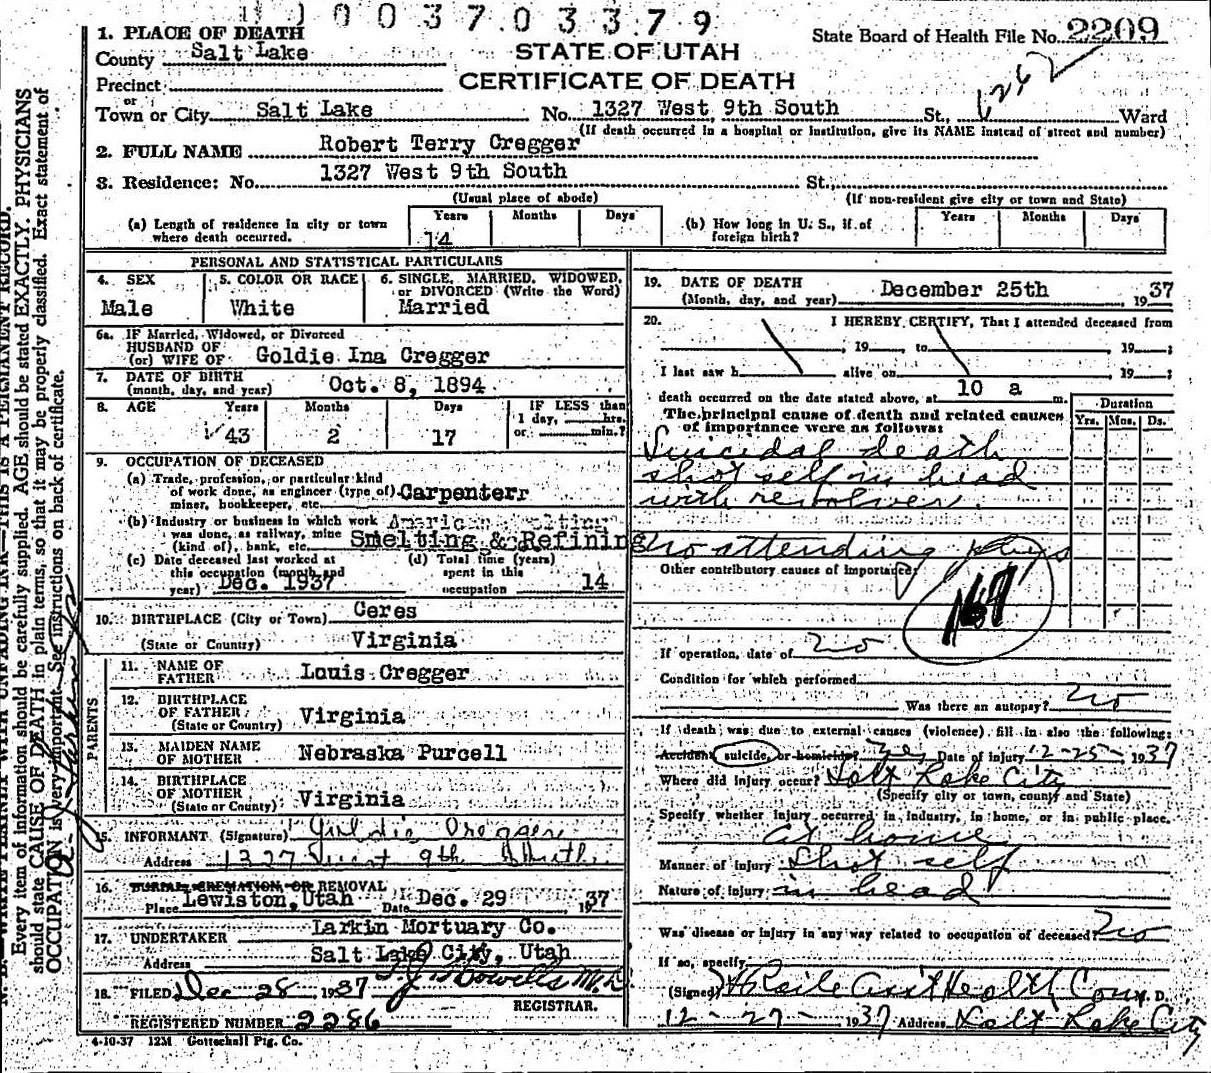 1003703379
1. PLACE OF DEATH
State Board of Health File No. 2209
County Salt Lake
STATE OF UTAH
Precinct
CERTIFICATE OF DEATH
6262
or
Town or City Salt Lake No. 1327 West 9th South St., Ward
(If death occurred in a hospital or institution, give its NAME instead of street and number)
2. FULL NAME Robert Terry Cregger
3. Residence: No. 1327 West 9th South St.,
(Usual place of abode) (If non-resident give city or town and State)
(a) Length of residence in city or town where death occurred. Years 14 Months Days
(b) How long in U. S., if of foreign birth? Years Months Days
PERSONAL AND STATISTICAL PARTICULARS
4. SEX Male
5. COLOR OR RACE White
6. SINGLE, MARRIED, WIDOWED, or DIVORCED (Write the Word) Married
6a. IF Married, Widowed, or Divorced
HUSBAND OF
(or) WIFE OF Goldie Ina Cregger
7. DATE OF BIRTH
(month, day, and year) Oct. 8, 1894
8. AGE Years 43 Months 2 Days 17
IF LESS than 1 day, hrs. or min.?
9. OCCUPATION OF DECEASED
(a) Trade, profession, or particular kind
of work done, as engineer (type of) Carpenterr
miner, bookkeeper, etc.
(b) Industry or business in which work American
was done, as railway, mine
(kind of), bank, etc. Smelting & Refining
(c) Date deceased last worked at
this occupation (month and
year) Dec. 1937
(d) Total time (years)
spent in this
occupation 14
10. BIRTHPLACE (City or Town) Ceres
(State or Country) Virginia
PARENTS
11. NAME OF FATHER Louis Cregger
12. BIRTHPLACE OF FATHER
(State or Country) Virginia
13. MAIDEN NAME OF MOTHER Nebraska Purcell
14. BIRTHPLACE OF MOTHER
(State or Country) Virginia
15. INFORMANT (Signature) Goldie Cregger
Address 1327 West 9th South
16. BURIAL, CREMATION, OR REMOVAL
Place Lewiston, Utah Date Dec. 29 1937
17. UNDERTAKER Larkin Mortuary Co.
Address Salt Lake City, Utah
18. FILED Dec 28 1937
REGISTRAR.
REGISTERED NUMBER 2286
4-10-37 12M Gottschall Ptg. Co.
19. DATE OF DEATH
(Month, day, and year) December 25th 1937
20. I HEREBY CERTIFY, That I attended deceased from
, 19 , to , 19 ;
I last saw h alive on , 19 ;
death occurred on the date stated above, at 10 a m.
The principal cause of death and related causes
of importance were as follows:
Duration
Yrs. Mos. Ds.
Suicidal death
shot self in head
with revolver
no attending phys
Other contributory causes of importance:
If operation, date of no
Condition for which performed
Was there an autopsy? no
If death was due to external causes (violence) fill in also the following:
Accident, suicide, or homicide? Yes Date of injury 12-25-1937
Where did injury occur? Salt Lake City
(Specify city or town, county and State)
Specify whether injury occurred in industry, in home, or in public place.
at home
Manner of injury Shot self
Nature of injury in head
Was disease or injury in any way related to occupation of deceased? no
If so, specify
(Signed) M. D.
12-27-1937 Address Salt Lake City
Every item of information should be carefully supplied. AGE should be stated EXACTLY. PHYSICIANS
should state CAUSE OF DEATH in plain terms, so that it may be properly classified. Exact statement of
OCCUPATION is very important. See instructions on back of certificate.